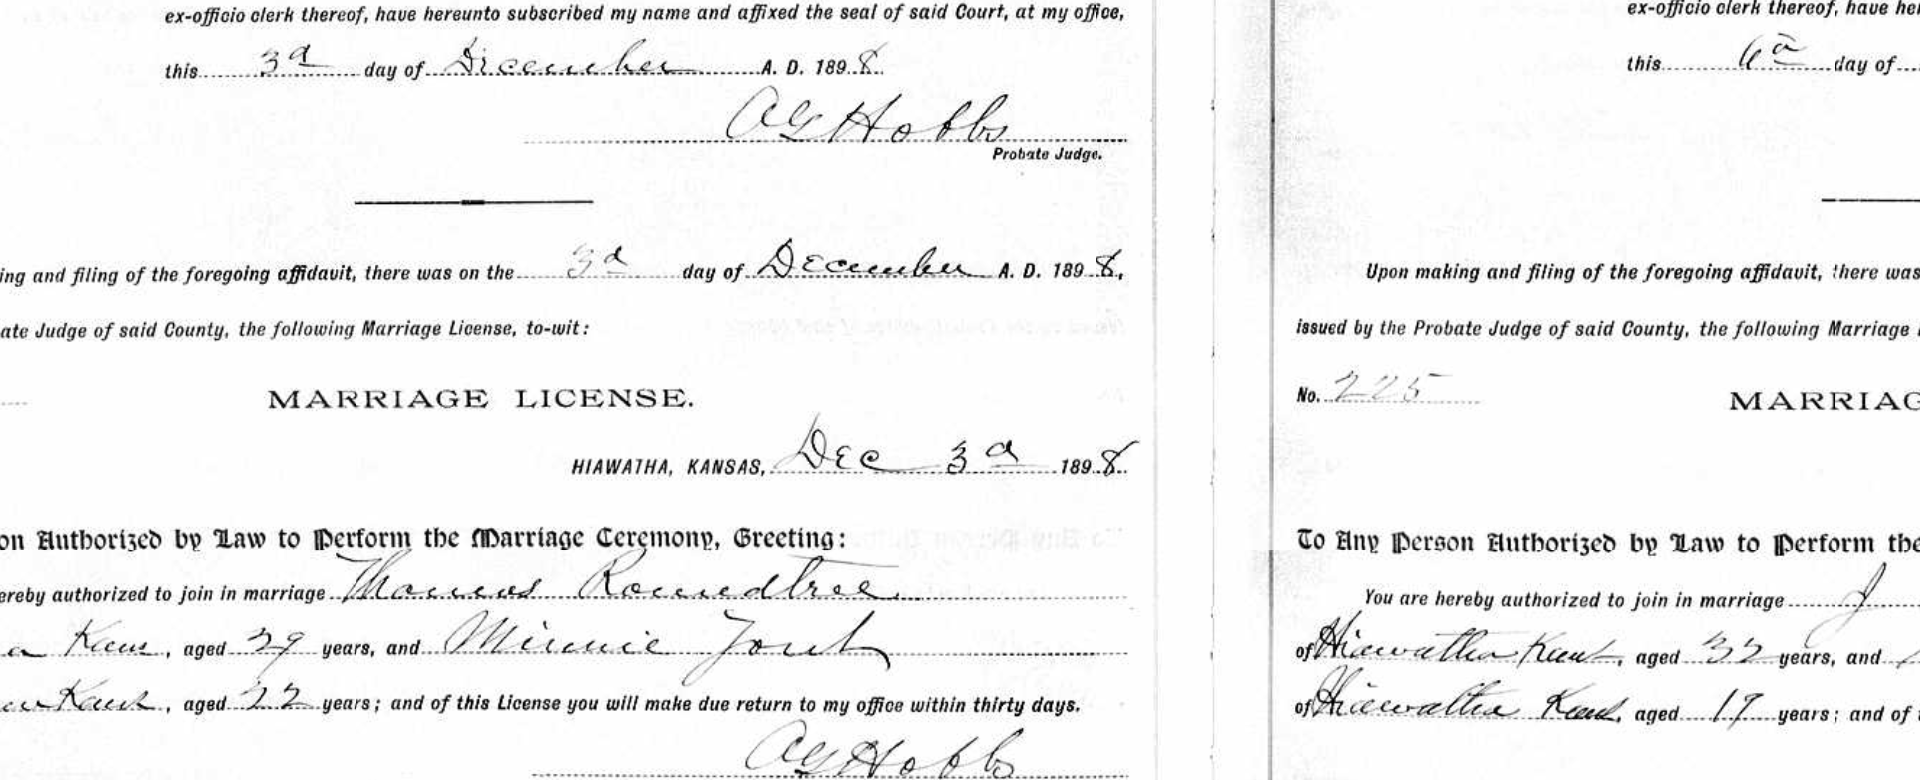 ex-officio clerk thereof, have hereunto subscribed my name and affixed the seal of said Court, at my office,
this 3d day of December A. D. 1898
A G Hobbs
Probate Judge.
ing and filing of the foregoing affidavit, there was on the 3d day of December A. D. 1898,
ate Judge of said County, the following Marriage License, to-wit:
MARRIAGE LICENSE.
HIAWATHA, KANSAS, Dec 3d 1898
on Authorized by Law to Perform the Marriage Ceremony, Greeting:
ereby authorized to join in marriage Thomas Roundtree
a Kans, aged 29 years, and Minnie
Kans, aged 22 years; and of this License you will make due return to my office within thirty days.
A G Hobbs
ex-officio clerk thereof, have he
this 6th day of
Upon making and filing of the foregoing affidavit, there was
issued by the Probate Judge of said County, the following Marriage
No. 225
MARRIAG
To Any Person Authorized by Law to Perform the
You are hereby authorized to join in marriage J
of Hiawatha Kans, aged 32 years, and
of Hiawatha Kans, aged 17 years; and of